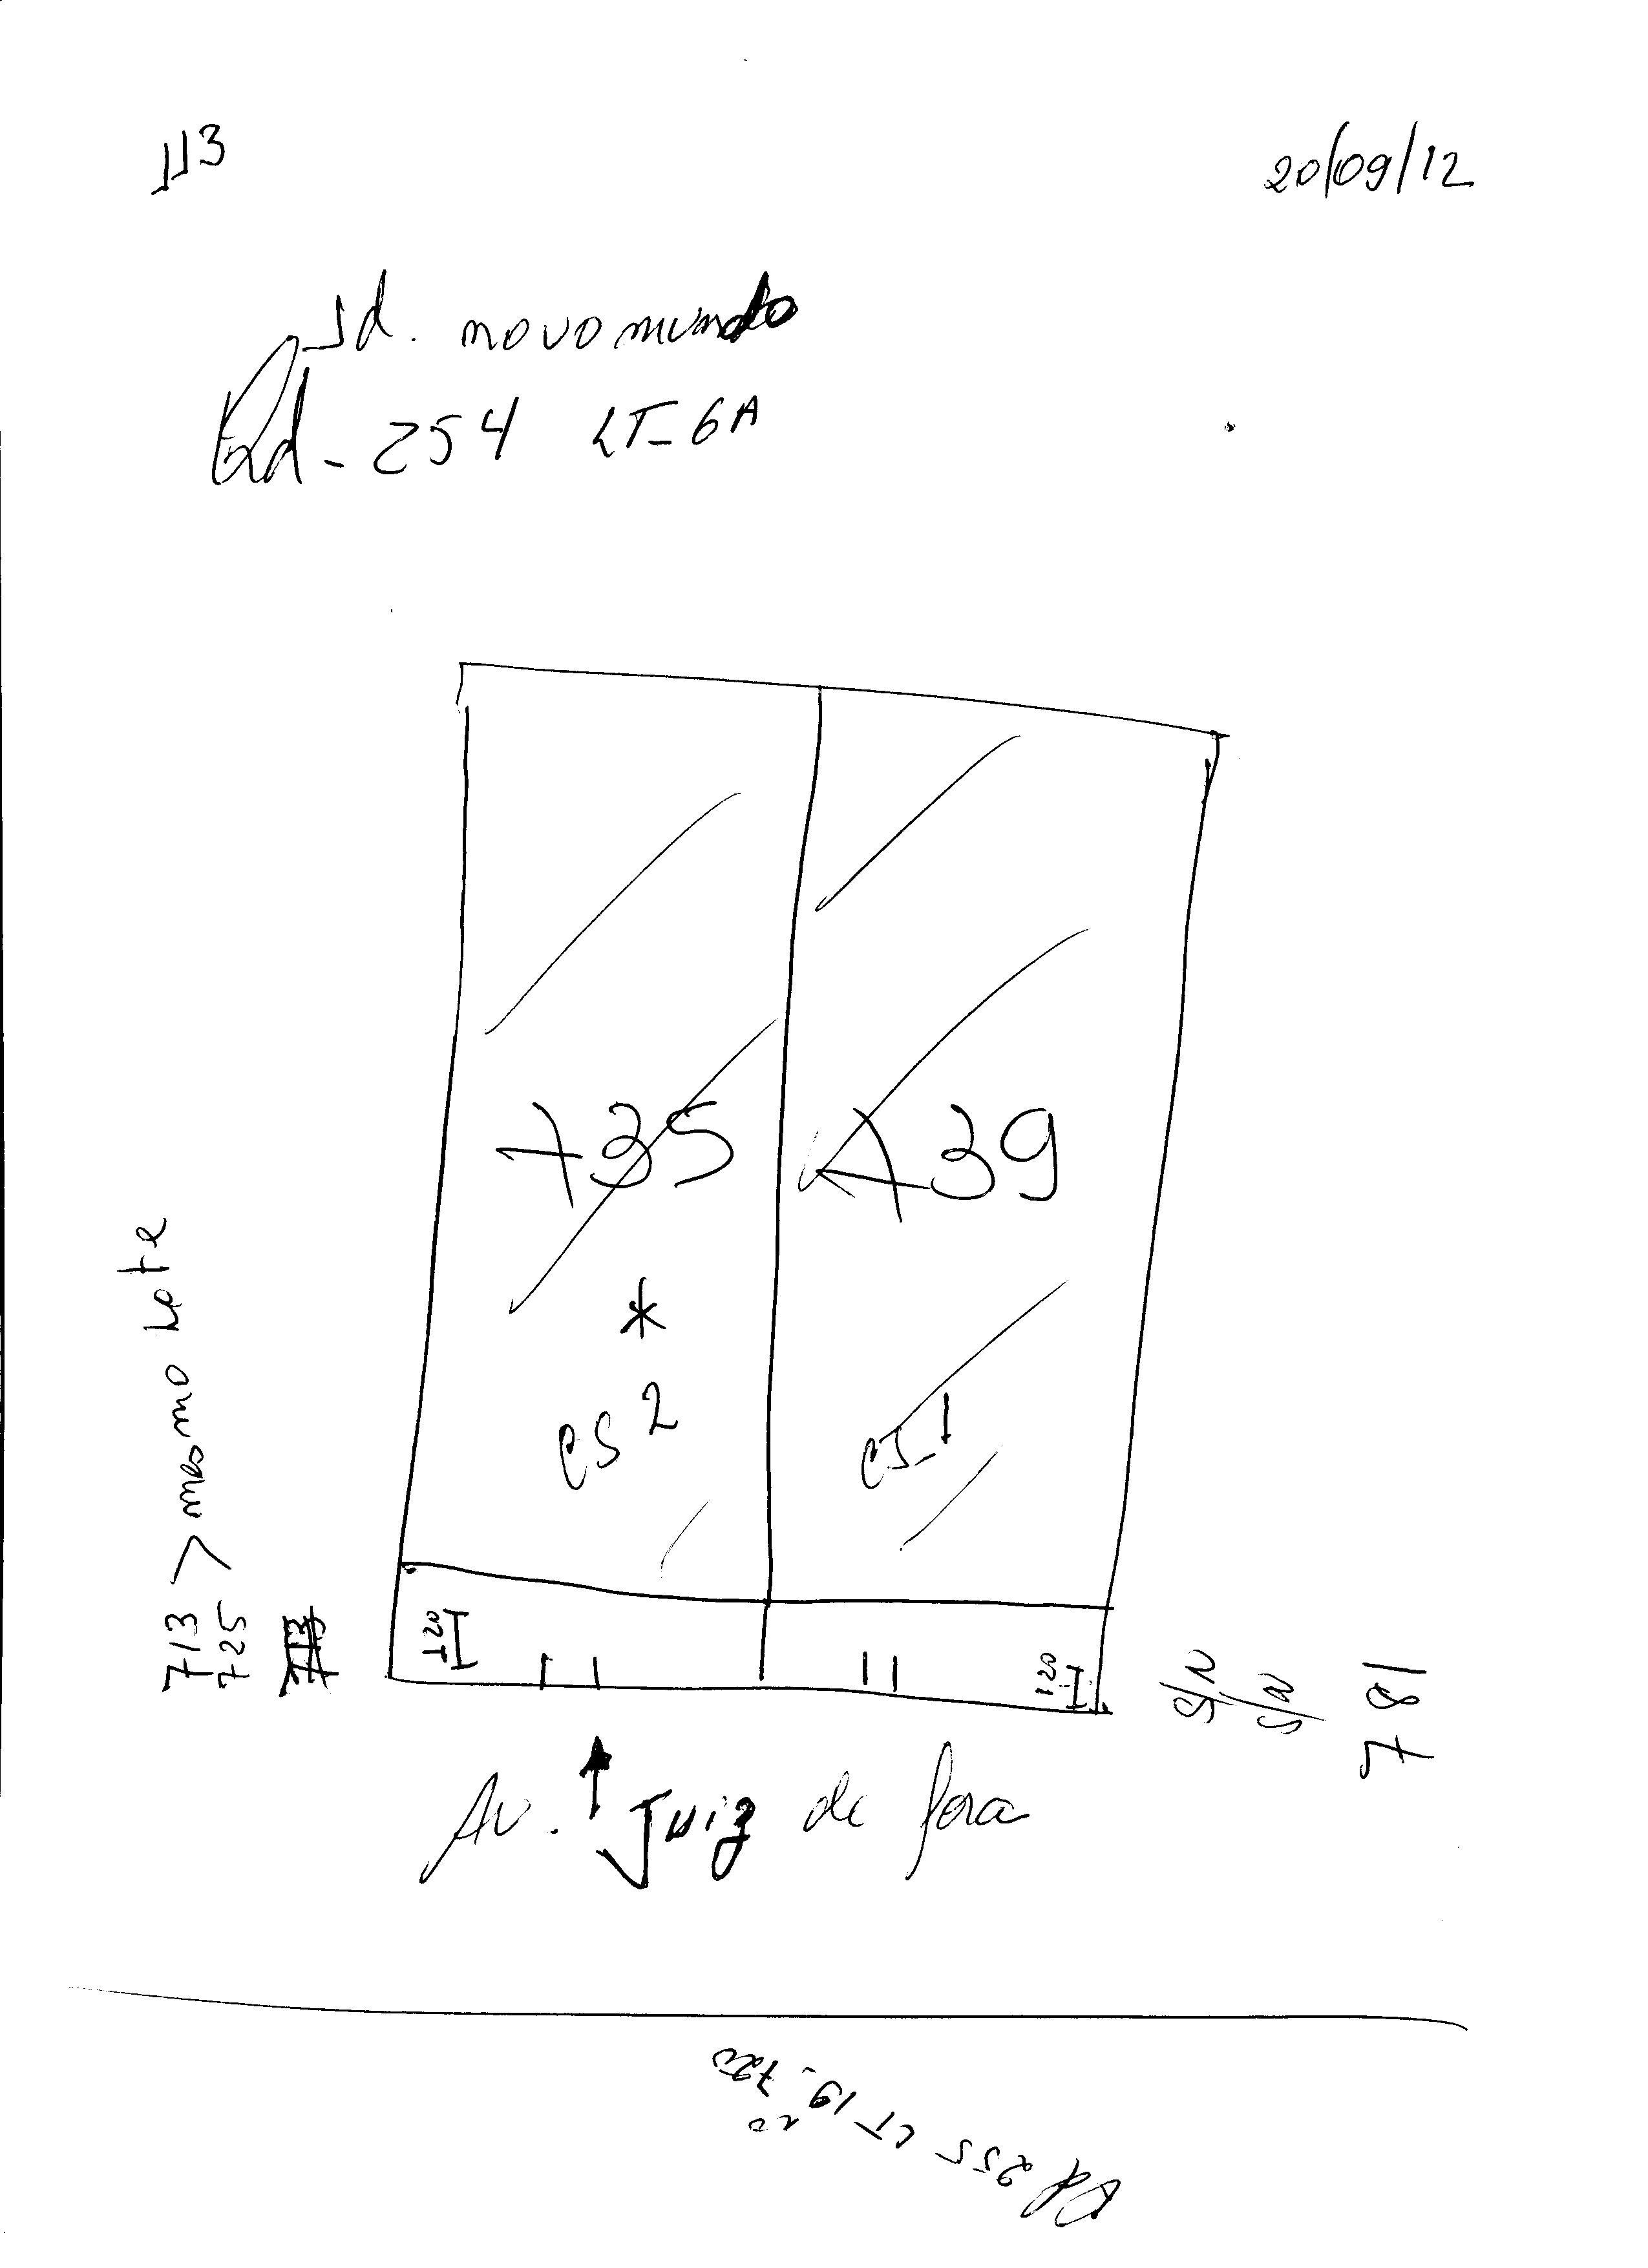 113
20/09/12
Jd. novo mundo
Qd - 254 LT- 6A
735
739
*
cs 2
cs-1
713 > mesmo Lote
725
120
S/N
S/N
781
Av. Juiz de fora
Qd 255 LT 19 - 720
20